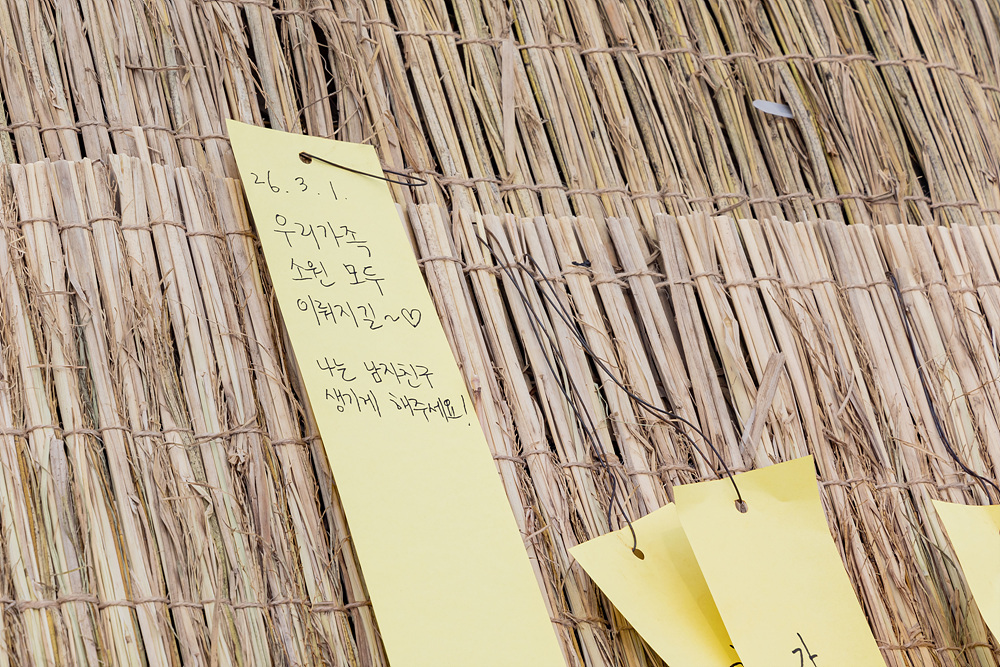 26. 3. 1.
우리가족
소원 모두
이뤄지길~♡
나는 남자친구
생기게 해주세요!
가